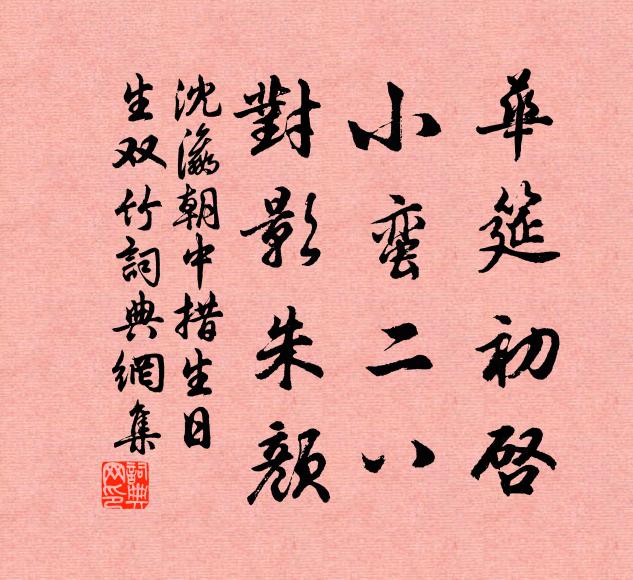 華筵初啓
小蛮二八
對影朱顏
沈瀛朝中措生日
生双竹詞典網集
詞典
网印